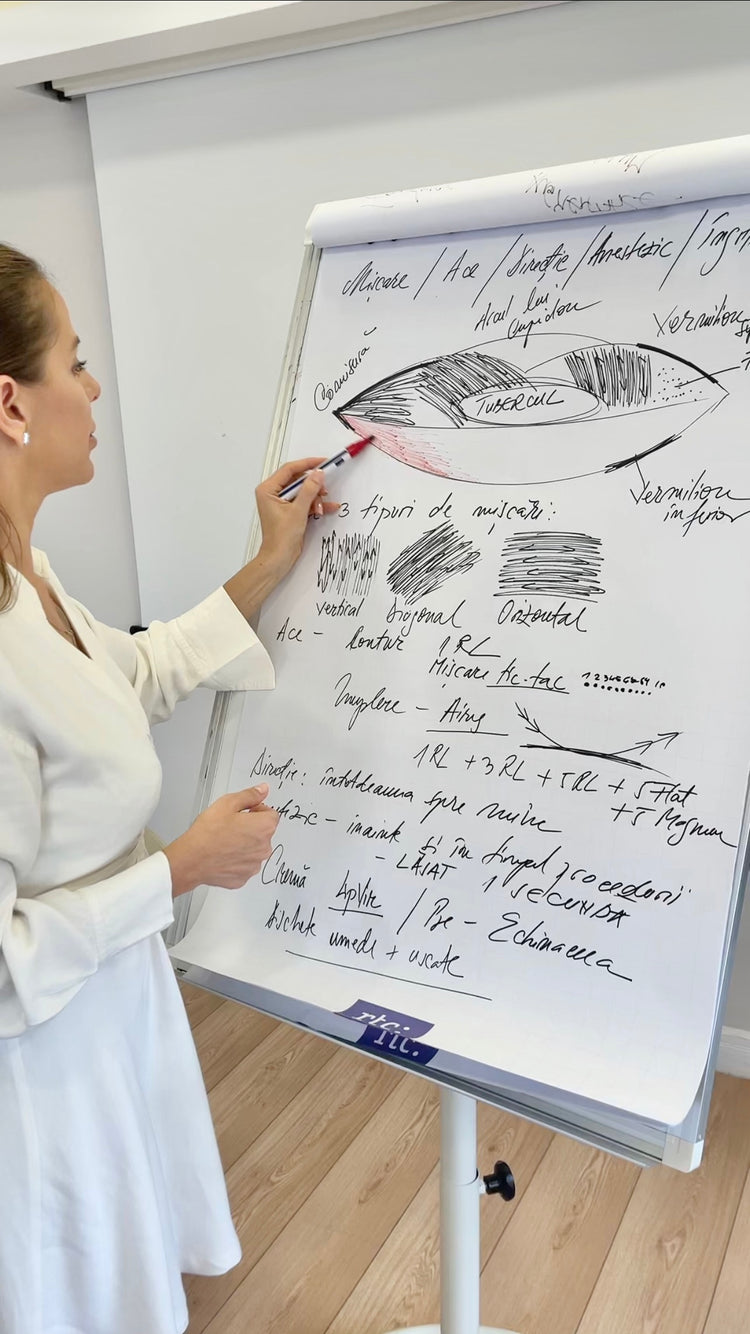 Mișcare / Ace / Direcție / Anestezic / Îngri
Arcul lui
Cupidon
Comisură
Vermilion
TUBERCUL
Vermilion
inferior
3 tipuri de mișcări:
Vertical Diagonal Orizontal
Ace - Contur 1RL
Mișcare tic-tac
Umplere - Airug
1RL + 3RL + 5RL + 5 Flat
+ 5 Magnum
Direcție: întotdeauna spre mine
- înainte și în timpul procedurii
- LĂSAT 1 SECUNDĂ
Cremă / Be - Echinacea
Dischete umede + uscate
rtc.